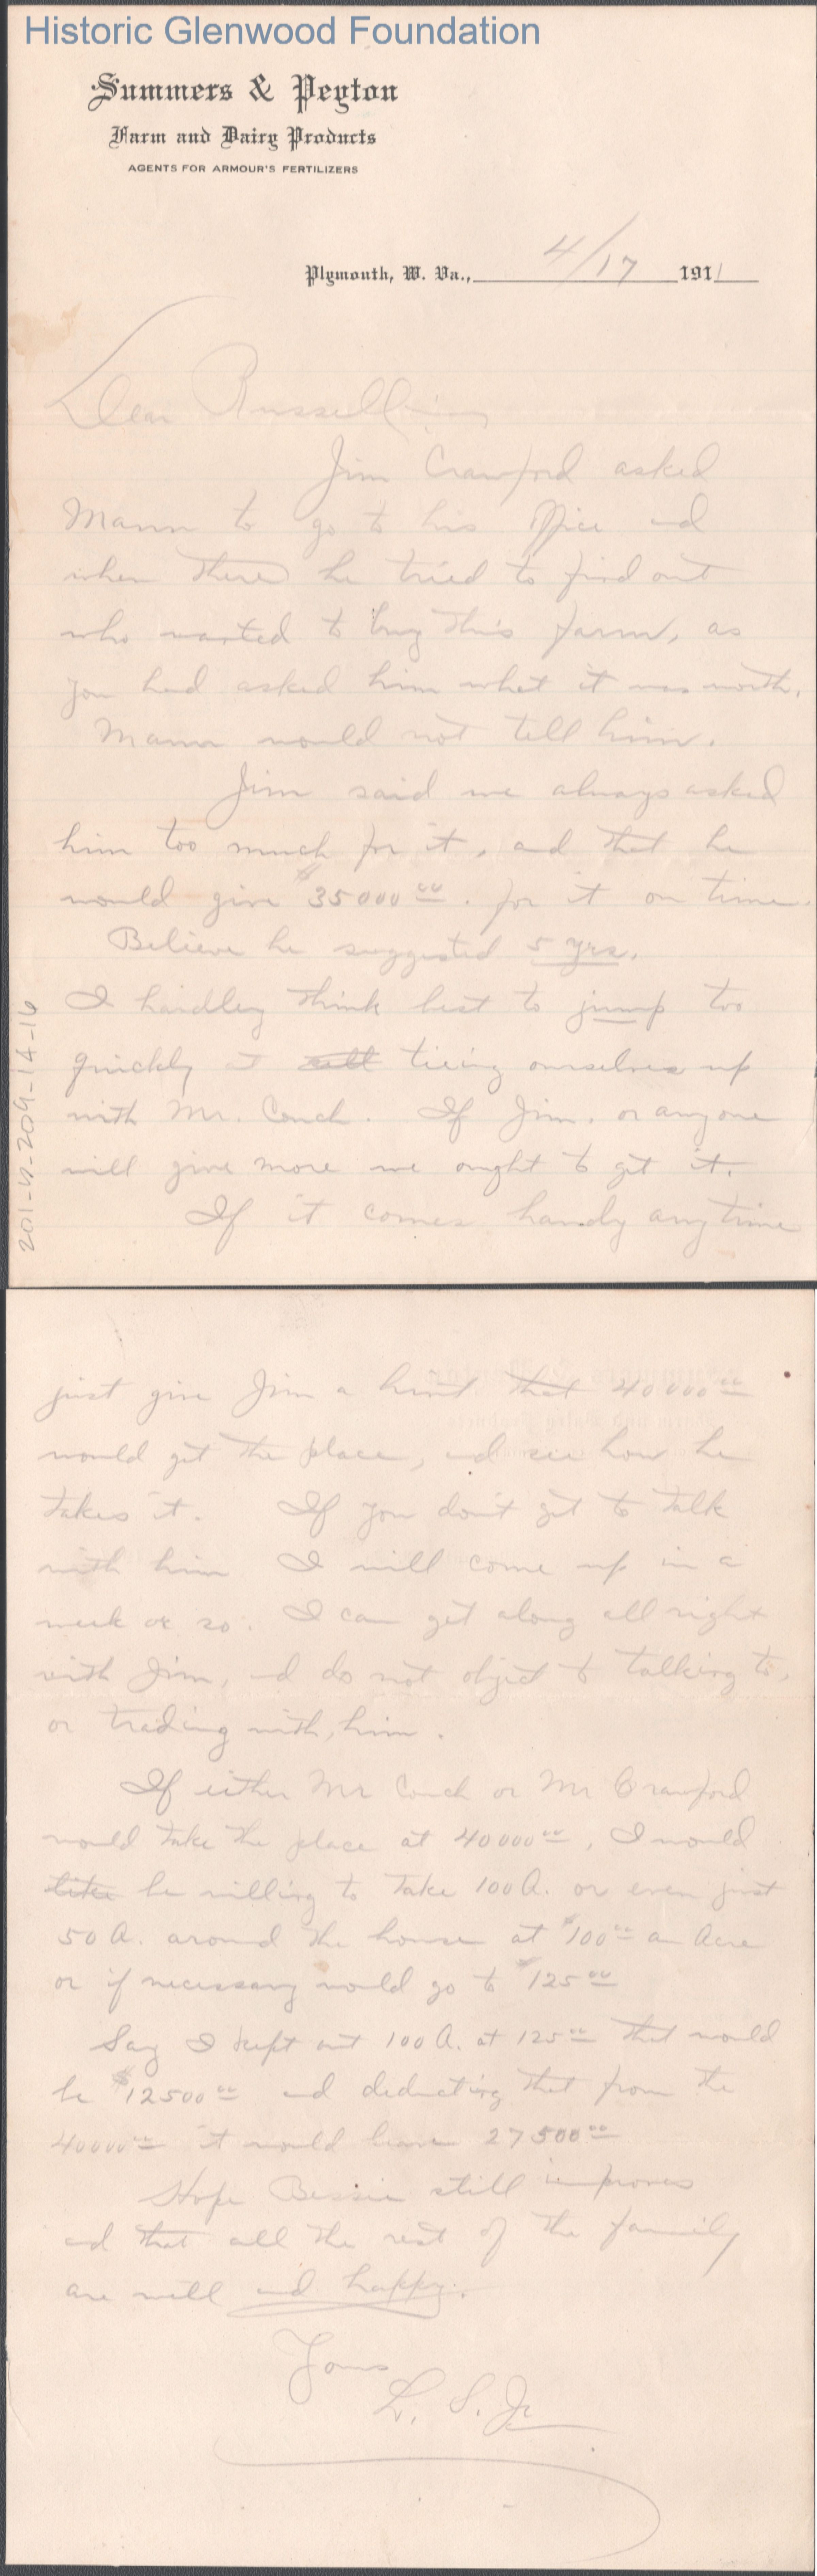 Historic Glenwood Foundation
Summers & Peyton
Farm and Dairy Products
AGENTS FOR ARMOUR'S FERTILIZERS
Plymouth, W. Va., 4/17 1911
Dear Russell:—
Jim Crawford asked
Mann to go to his office and
when there he tried to find out
who wanted to buy this farm, as
you had asked him what it was worth.
Mann would not tell him.
Jim said we always asked
him too much for it, and that he
would give $35000.00. for it on time.
Believe he suggested 5 yrs.
I hardley think best to jump too
quickly tieing ourselves up
with Mr. Couch. If Jim, or anyone
will give more we ought to get it.
If it comes handy anytime
201-4-209-14-16
just give Jim a hint that 40000.00
would get the place, and see how he
takes it. If you don't get to talk
with him I will come up in a
week or so. I can get along all right
with Jim, and do not object to talking to,
or trading with, him.
If either Mr Couch or Mr Crawford
would take the place at 40000.00, I would
like be willing to take 100 A. or even just
50 A. around the house at $100.00 an Acre
or if necessary would go to $125.00
Say I kept out 100 A. at 125.00 that would
be $12500.00 and deducting that from the
40000.00 it would leave 27500.00
Hope Bessie still improves
and that all the rest of the family
are well and happy.
Yours
L. S. Jr